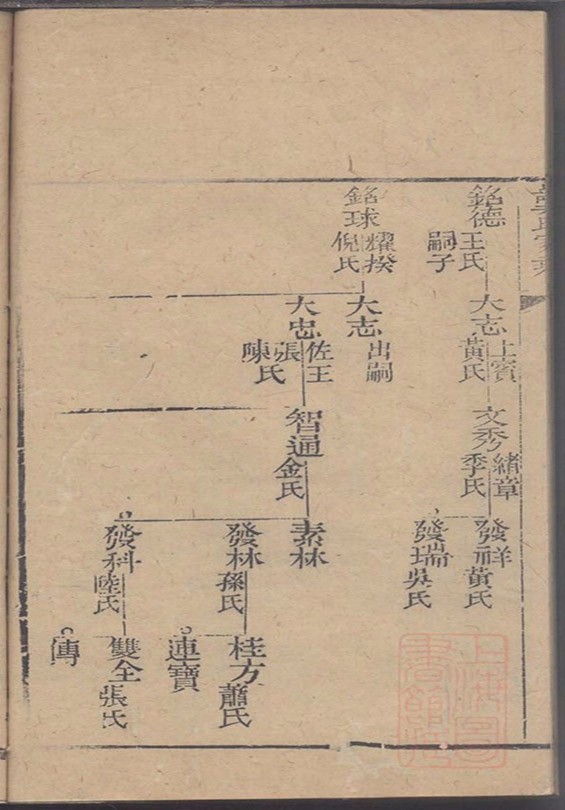 銘德
王氏
嗣子
銘球
耀揆
倪氏
大志
上賓
黃氏
大志
出嗣
大忠
佐王
張
陳氏
文秀
緒章
季氏
智通
金氏
發祥
黃氏
發瑞
吳氏
素林
發林
孫氏
發科
陸氏
桂方
蕭氏
連寶
雙全
張氏
傳